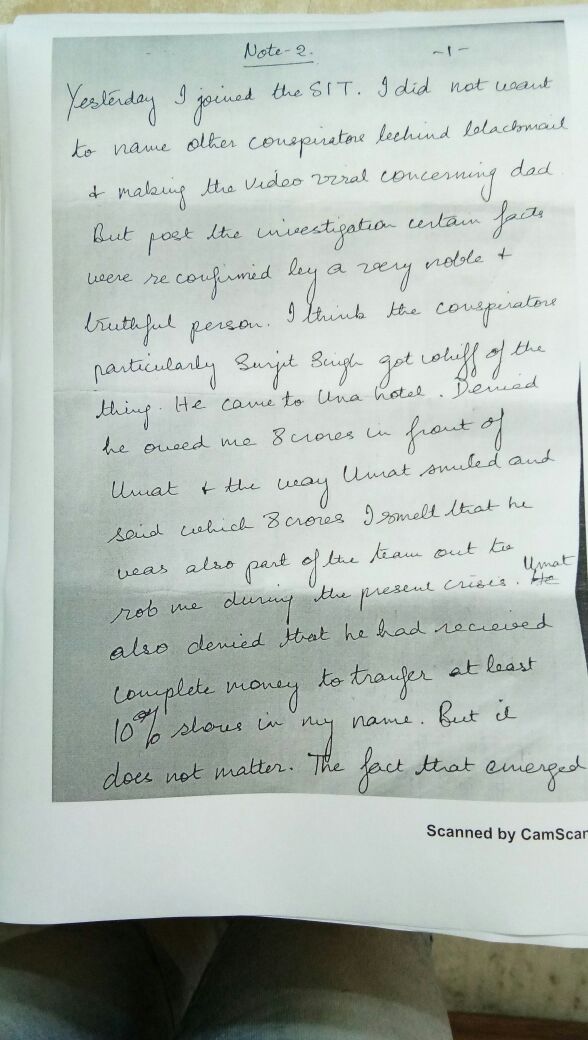 Note-2.
-1-
Yesterday I joined the SIT. I did not want
to name other conspirators behind blackmail
& making the video viral concerning dad.
But post the investigation certain facts
were reconfirmed by a very noble &
truthful person. I think the conspirators
particularly Surjit Singh got whiff of the
thing. He came to Una hotel. Denied
he owed me 8 crores in front of
Umat & the way Umat smiled and
said which 8 crores I smelt that he
was also part of the team out to
rob me during the present crisis. He Umat
also denied that he had recieved
complete money to tranfer at least
10% shares in my name. But it
does not matter. The fact that emerged
Scanned by CamScan